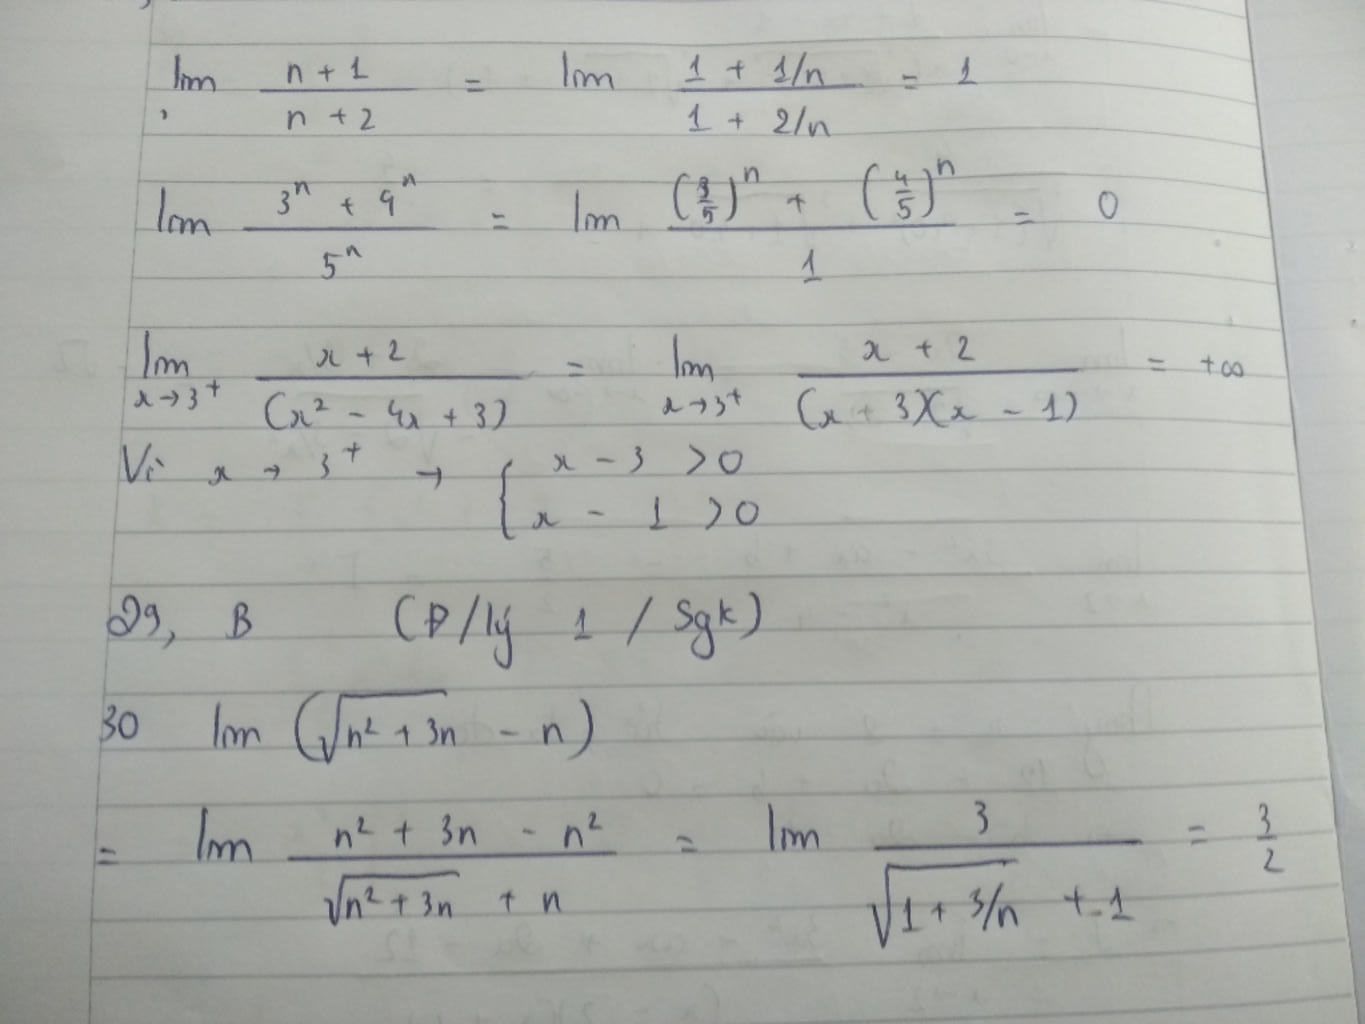 lim (n + 1)/(n + 2) = lim (1 + 1/n)/(1 + 2/n) = 1
lim (3ⁿ + 4ⁿ)/5ⁿ = lim ((3/5)ⁿ + (4/5)ⁿ)/1 = 0
lim x→3⁺ (x + 2)/(x² - 4x + 3) = lim x→3⁺ (x + 2)/((x + 3)(x - 1)) = +∞
Vì x → 3⁺ → { x - 3 > 0
x - 1 > 0
29, B (Đ/lý 1 / Sgk)
30 lim (√(n² + 3n) - n)
= lim (n² + 3n - n²)/(√(n² + 3n) + n) = lim 3/(√(1 + 3/n) + 1) = 3/2